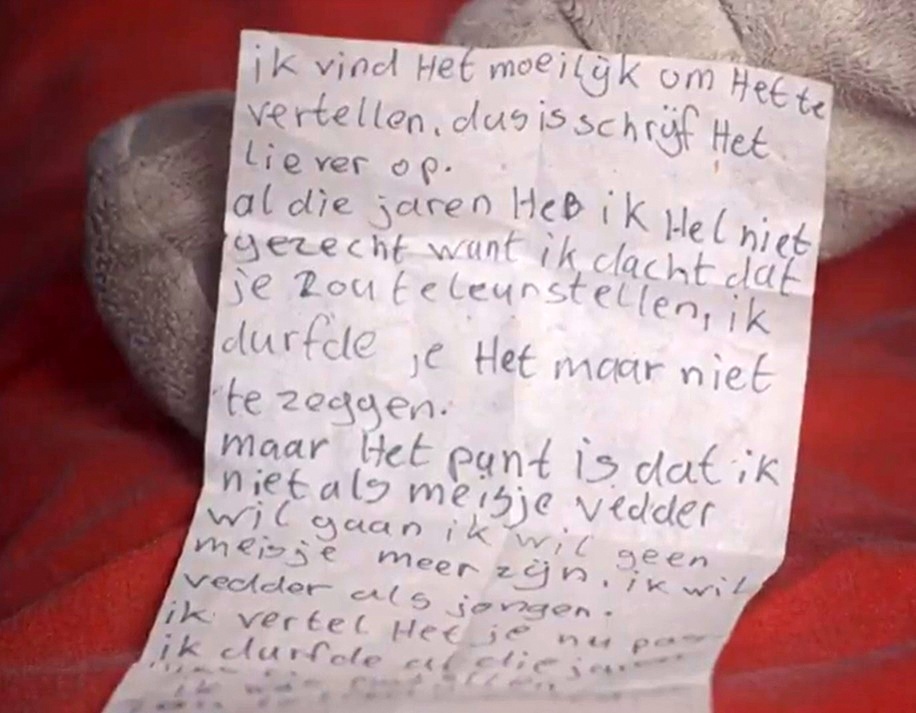 ik vind Het moeilijk om Het te
vertellen. dus is schrijf Het
liever op.
al die jaren Heb ik Het niet
gezecht want ik dacht dat
je zou teleurstellen, ik
durfde je Het maar niet
te zeggen.
maar Het punt is dat ik
niet als meisje vedder
wil gaan ik wil geen
meisje meer zijn. ik wil
vedder als jongen.
ik vertel Het je nu pas
ik durfde al die